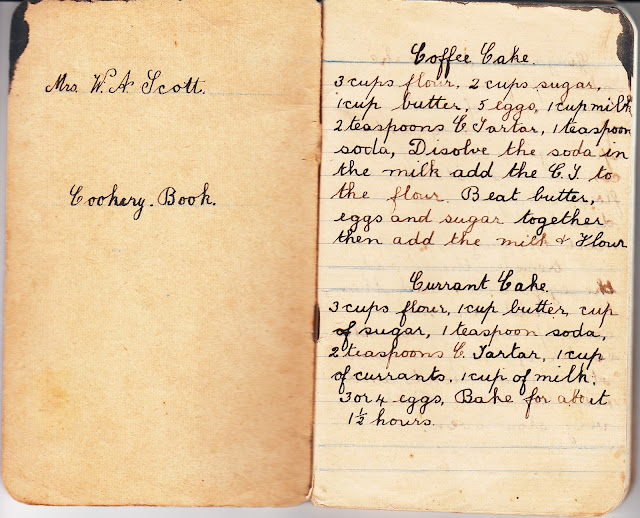 Mrs. W. A. Scott.
Cookery. Book.
Coffee Cake.
3 cups flour, 2 cups sugar,
1 cup butter, 5 eggs, 1 cup milk
2 teaspoons C. Tartar, 1 teaspoon
soda, Disolve the soda in
the milk add the C. T. to
the flour. Beat butter,
eggs and sugar together
then add the milk & Flour
Currant Cake.
3 cups flour, 1 cup butter, cup
of sugar, 1 teaspoon soda,
2 teaspoons C. Tartar, 1 cup
of currants, 1 cup of milk,
3 or 4 eggs, Bake for about
1½ hours.